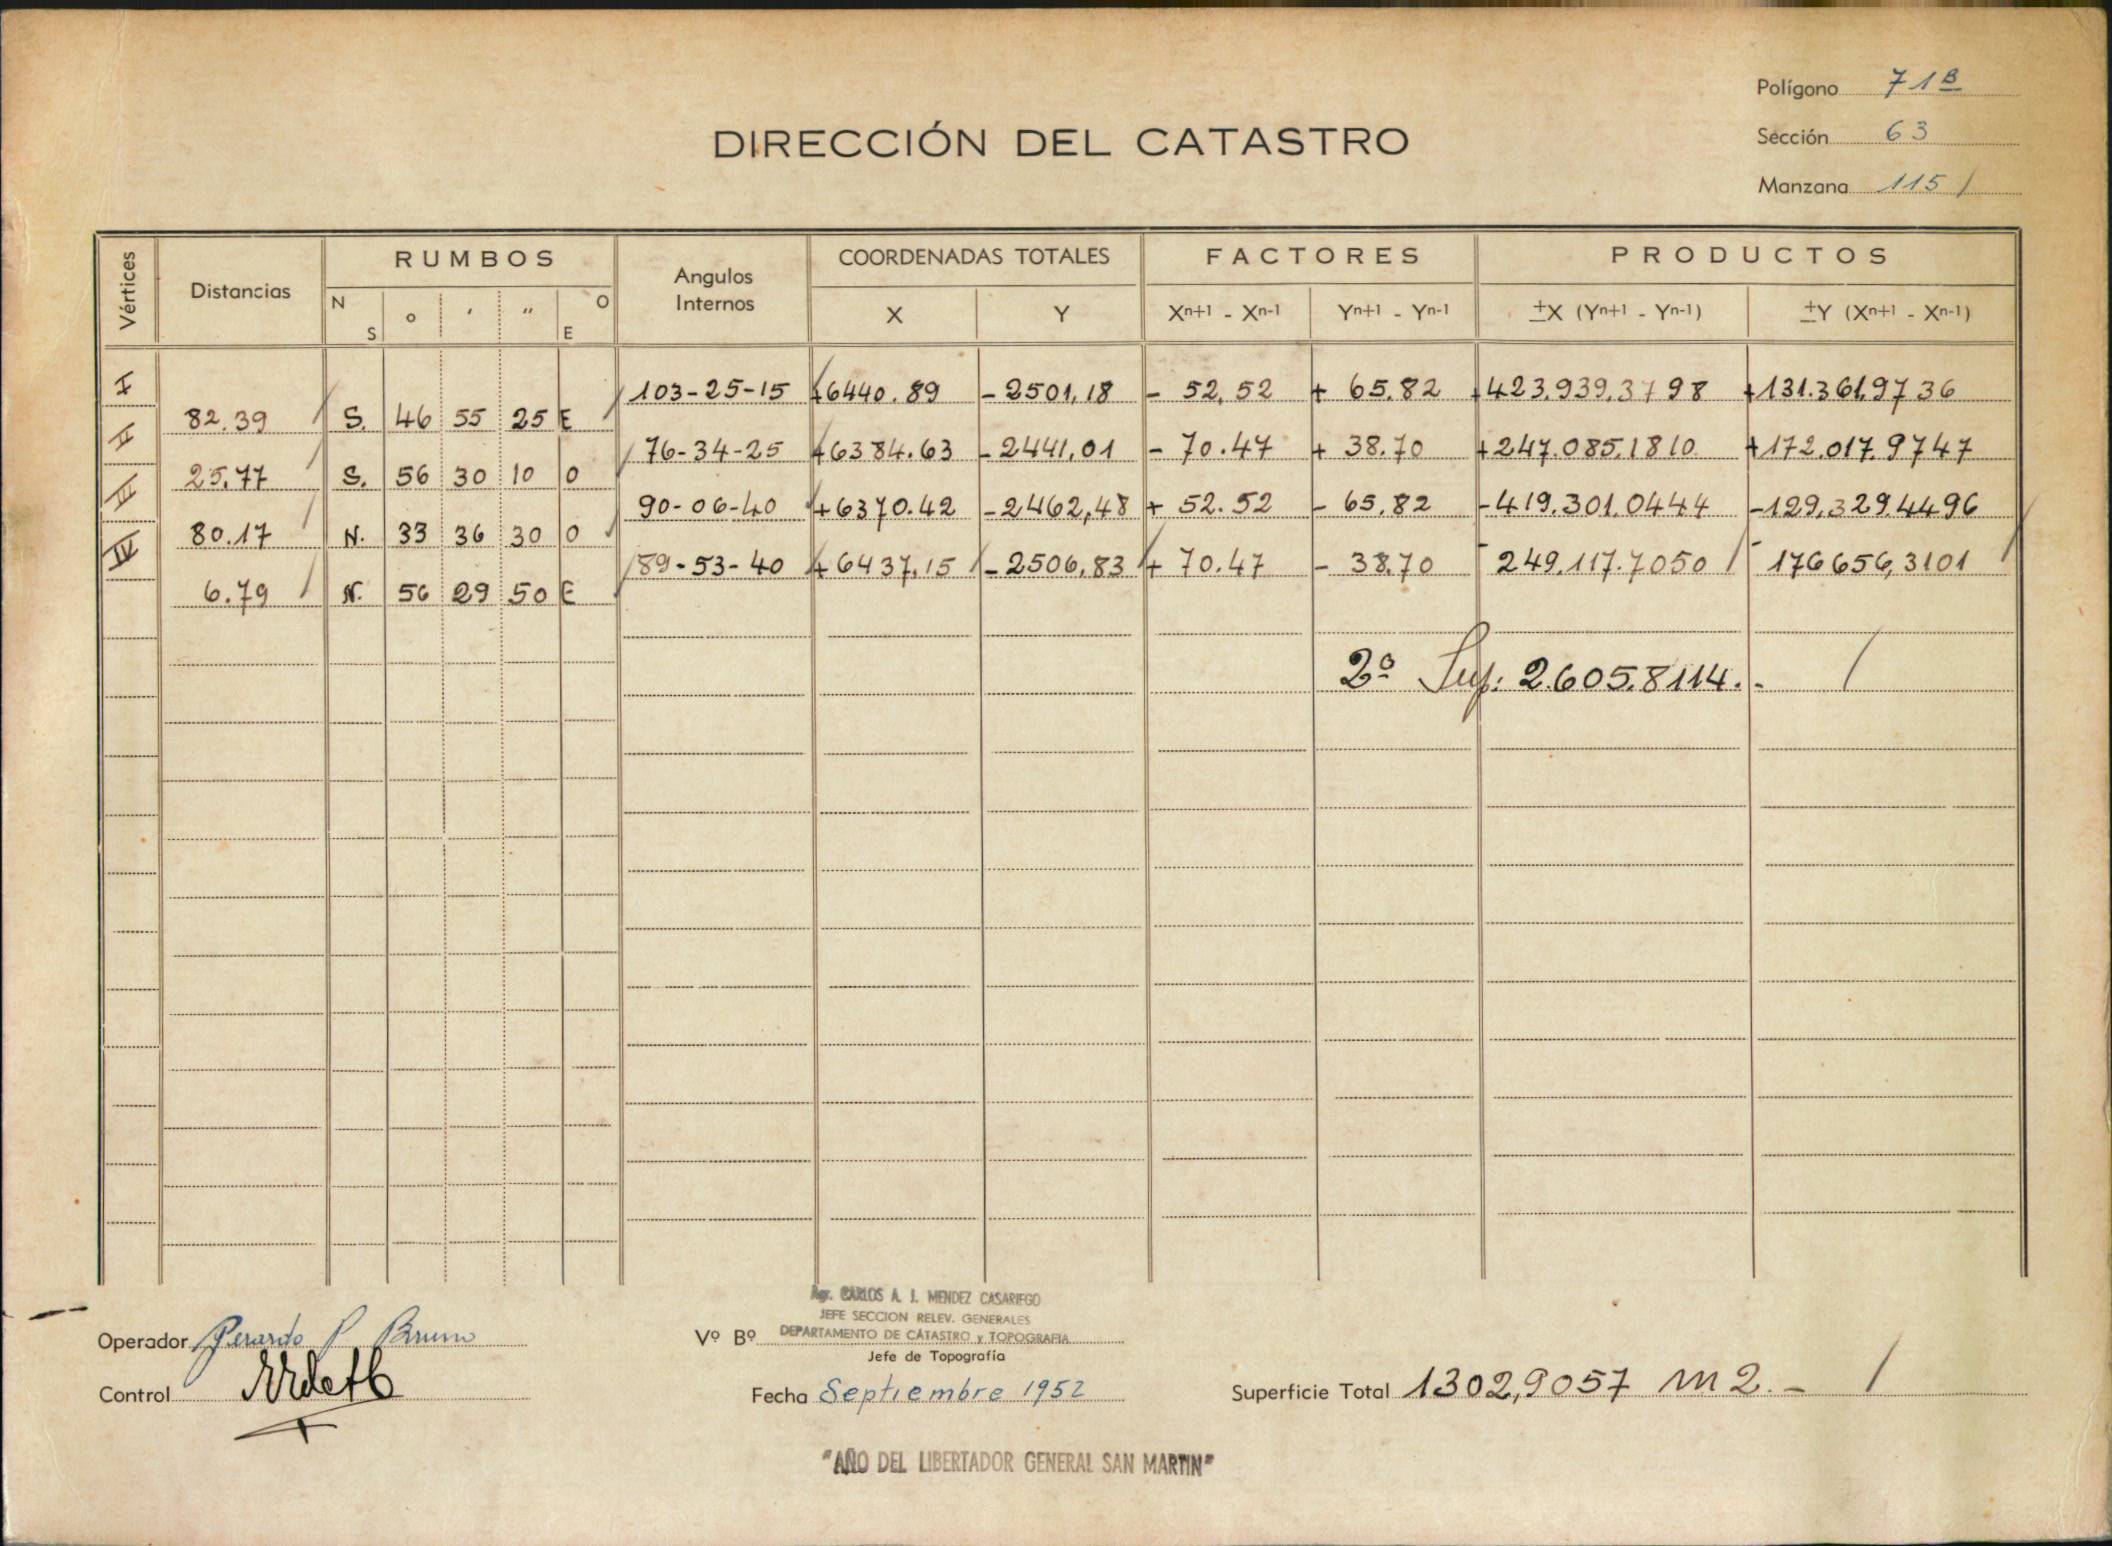 Polígono 71B
Sección 63
Manzana 115
DIRECCIÓN DEL CATASTRO
Vértices Distancias RUMBOS Angulos Internos COORDENADAS TOTALES FACTORES PRODUCTOS
N S o ' " O E X Y Xn+1 - Xn-1 Yn+1 - Yn-1 ±X (Yn+1 - Yn-1) ±Y (Xn+1 - Xn-1)
I 103-25-15 +6440.89 -2501,18 - 52,52 + 65.82 +423.939.3798 +131.361.9736
82.39 S. 46 55 25 E
II 76-34-25 +6384.63 -2441,01 - 70.47 + 38.70 +247.085.1810 +172.017.9747
25.77 S. 56 30 10 O
III 90-06-40 +6370.42 -2462,48 + 52.52 - 65,82 -419.301.0444 -129.329.4496
80.17 N. 33 36 30 O
IV 89-53-40 +6437,15 -2506,83 + 70.47 - 38.70 -249.117.7050 -176656,3101
6.79 N. 56 29 50 E
2º Sup: 2.605.8114.-
Agr. CARLOS A. J. MENDEZ CASARIEGO
JEFE SECCION RELEV. GENERALES
Vº Bº DEPARTAMENTO DE CATASTRO y TOPOGRAFIA
Jefe de Topografía
Operador Gerardo P. Bruno
Control
Fecha Septiembre 1952
Superficie Total 1302,9057 m2.-
"AÑO DEL LIBERTADOR GENERAL SAN MARTIN"